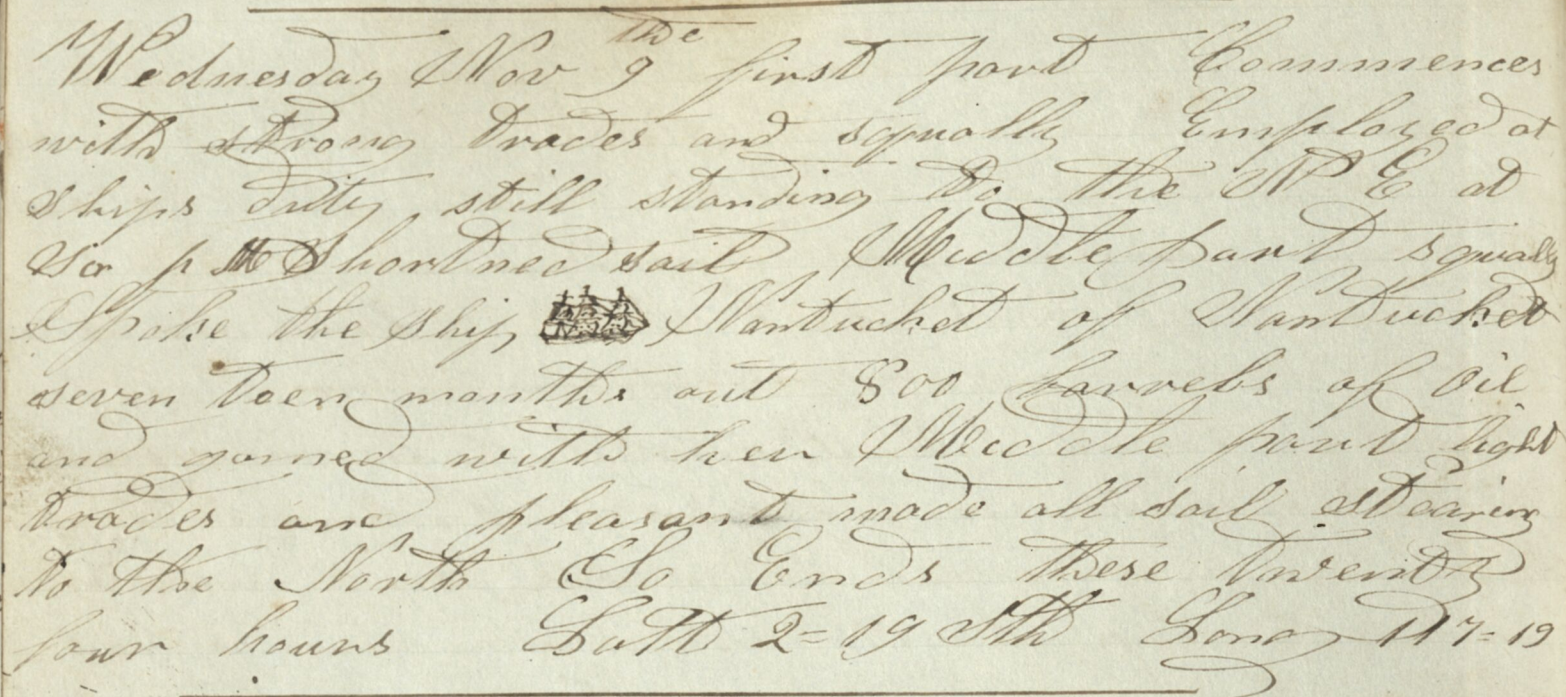 Wednesday Nov 9 the first part Commences
with strong trades and squally Employed at
ships duty still standing to the N E at
p M Shortned sail Middle part squally
Spoke the Ship Nantucket of Nantucket
seven teen months out 800 barrels of Oil
and gamed with her Middle part light
trades and pleasant made all sail stearing
to the North So Ends these twenty
four hours Latt 2=19 Sth Long 117=19